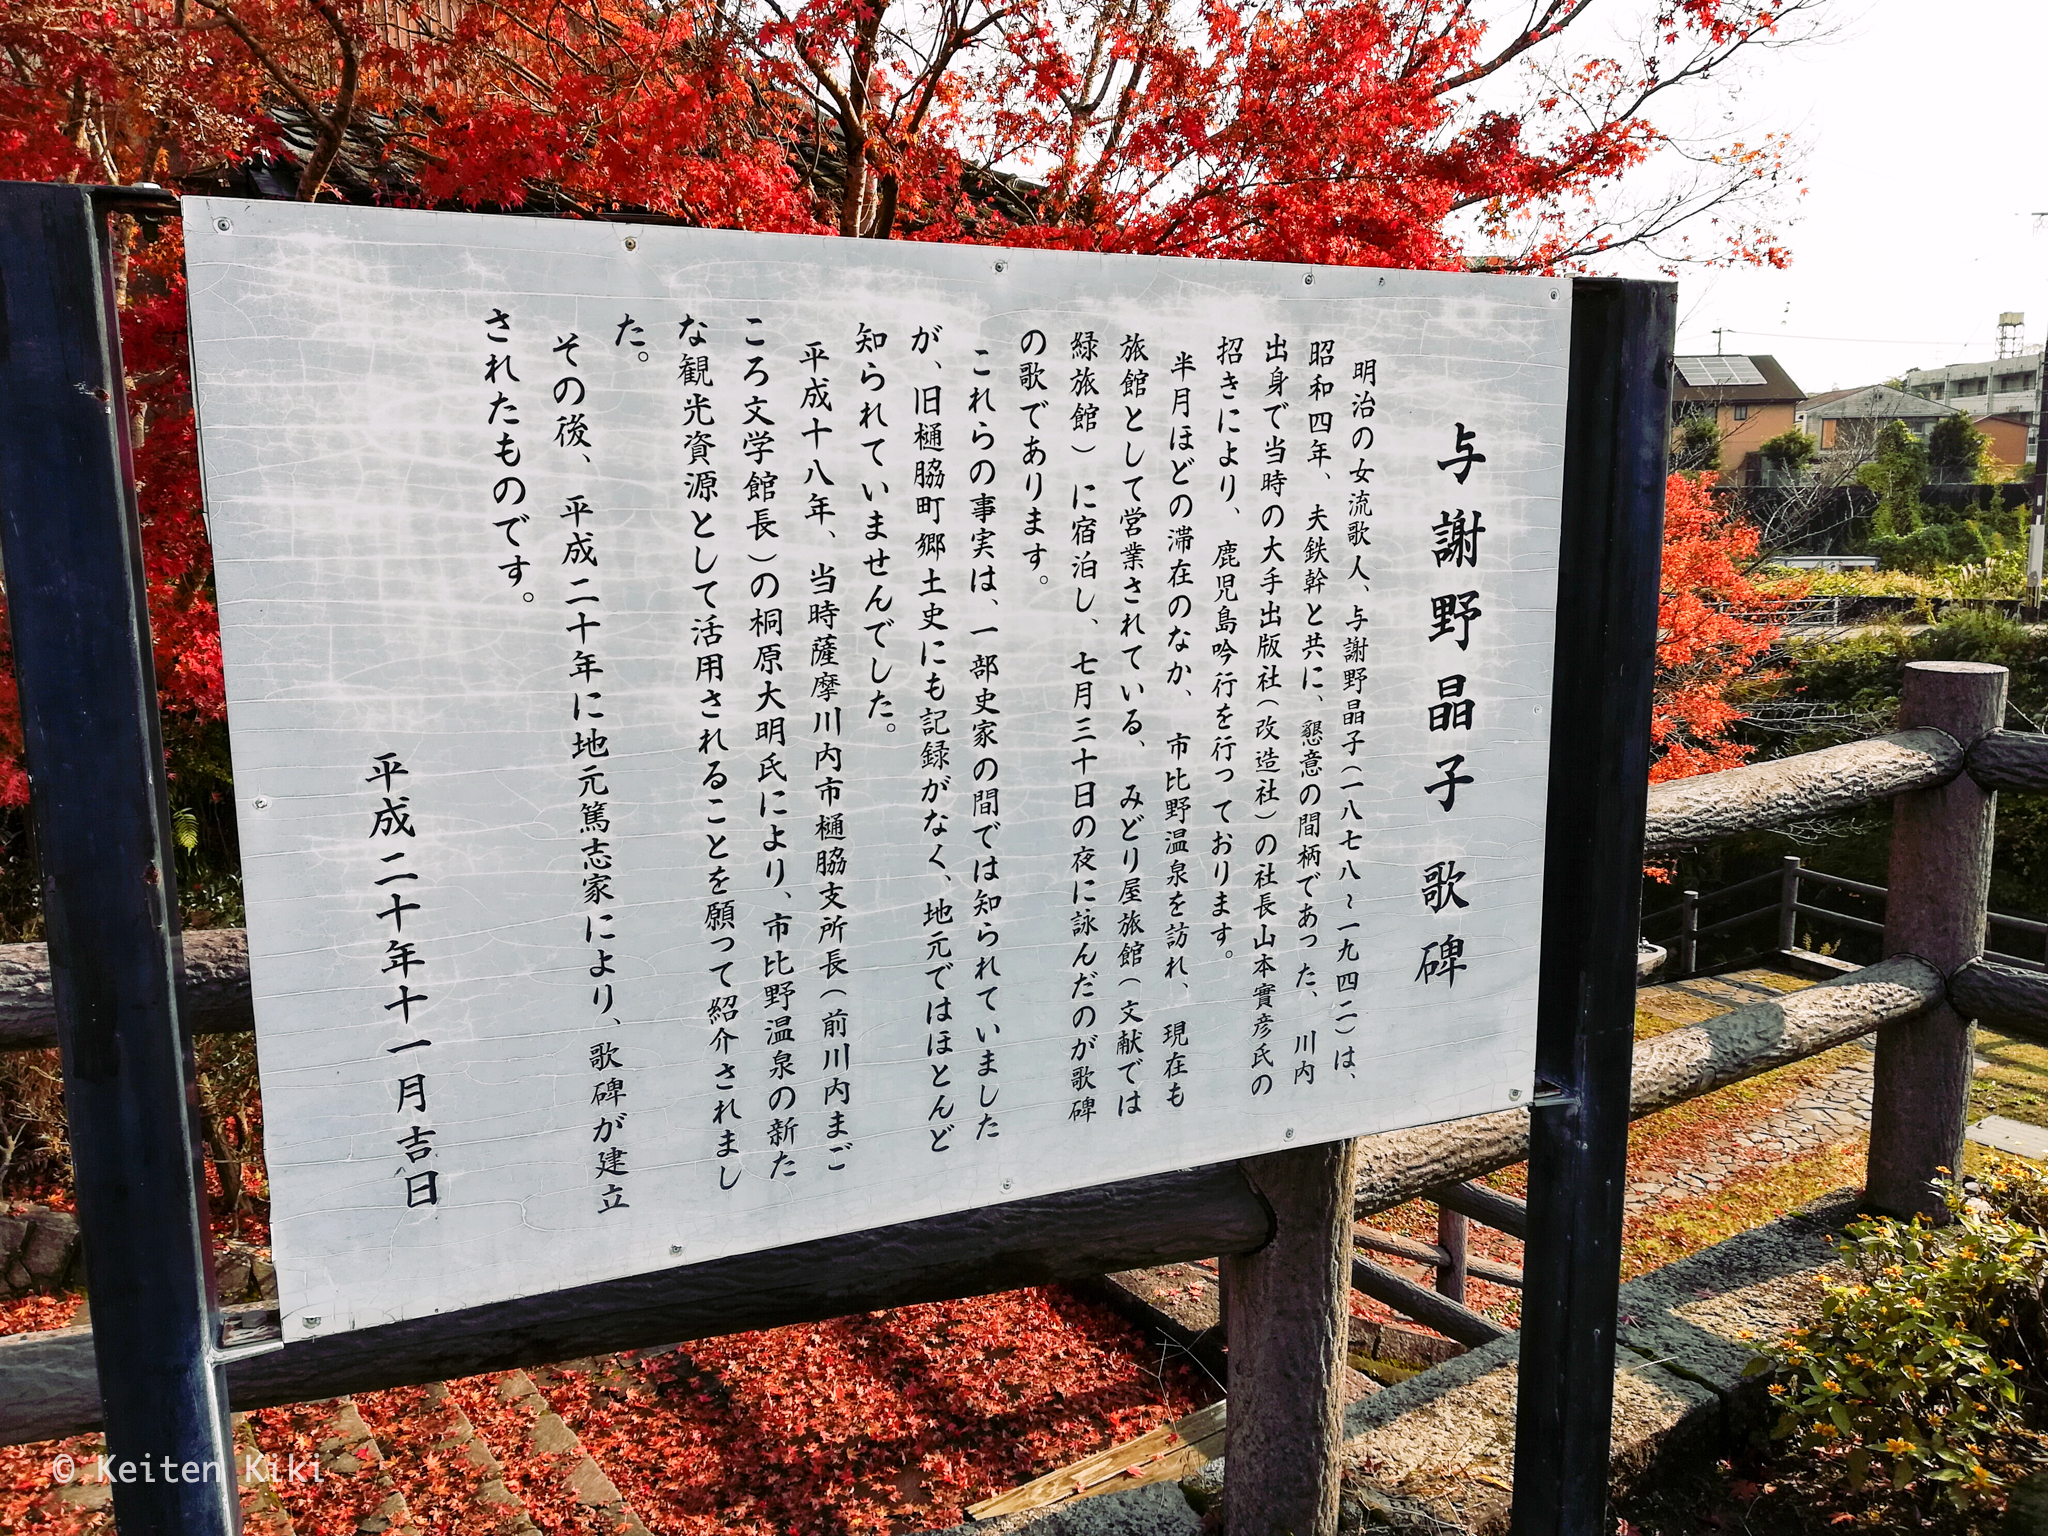 与謝野晶子 歌碑
明治の女流歌人、与謝野晶子(一八七八~一九四二)は、
昭和四年、夫鉄幹と共に、懇意の間柄であった、川内
出身で当時の大手出版社(改造社)の社長山本實彦氏の
招きにより、鹿児島吟行を行っております。
半月ほどの滞在のなか、市比野温泉を訪れ、現在も
旅館として営業されている、みどり屋旅館(文献では
緑旅館)に宿泊し、七月三十日の夜に詠んだのが歌碑
の歌であります。
これらの事実は、一部史家の間では知られていました
が、旧樋脇町郷土史にも記録がなく、地元ではほとんど
知られていませんでした。
平成十八年、当時薩摩川内市樋脇支所長(前川内まご
ころ文学館長)の桐原大明氏により、市比野温泉の新た
な観光資源として活用されることを願って紹介されまし
た。
その後、平成二十年に地元篤志家により、歌碑が建立
されたものです。
平成二十年十一月吉日
© Keiten Kiki